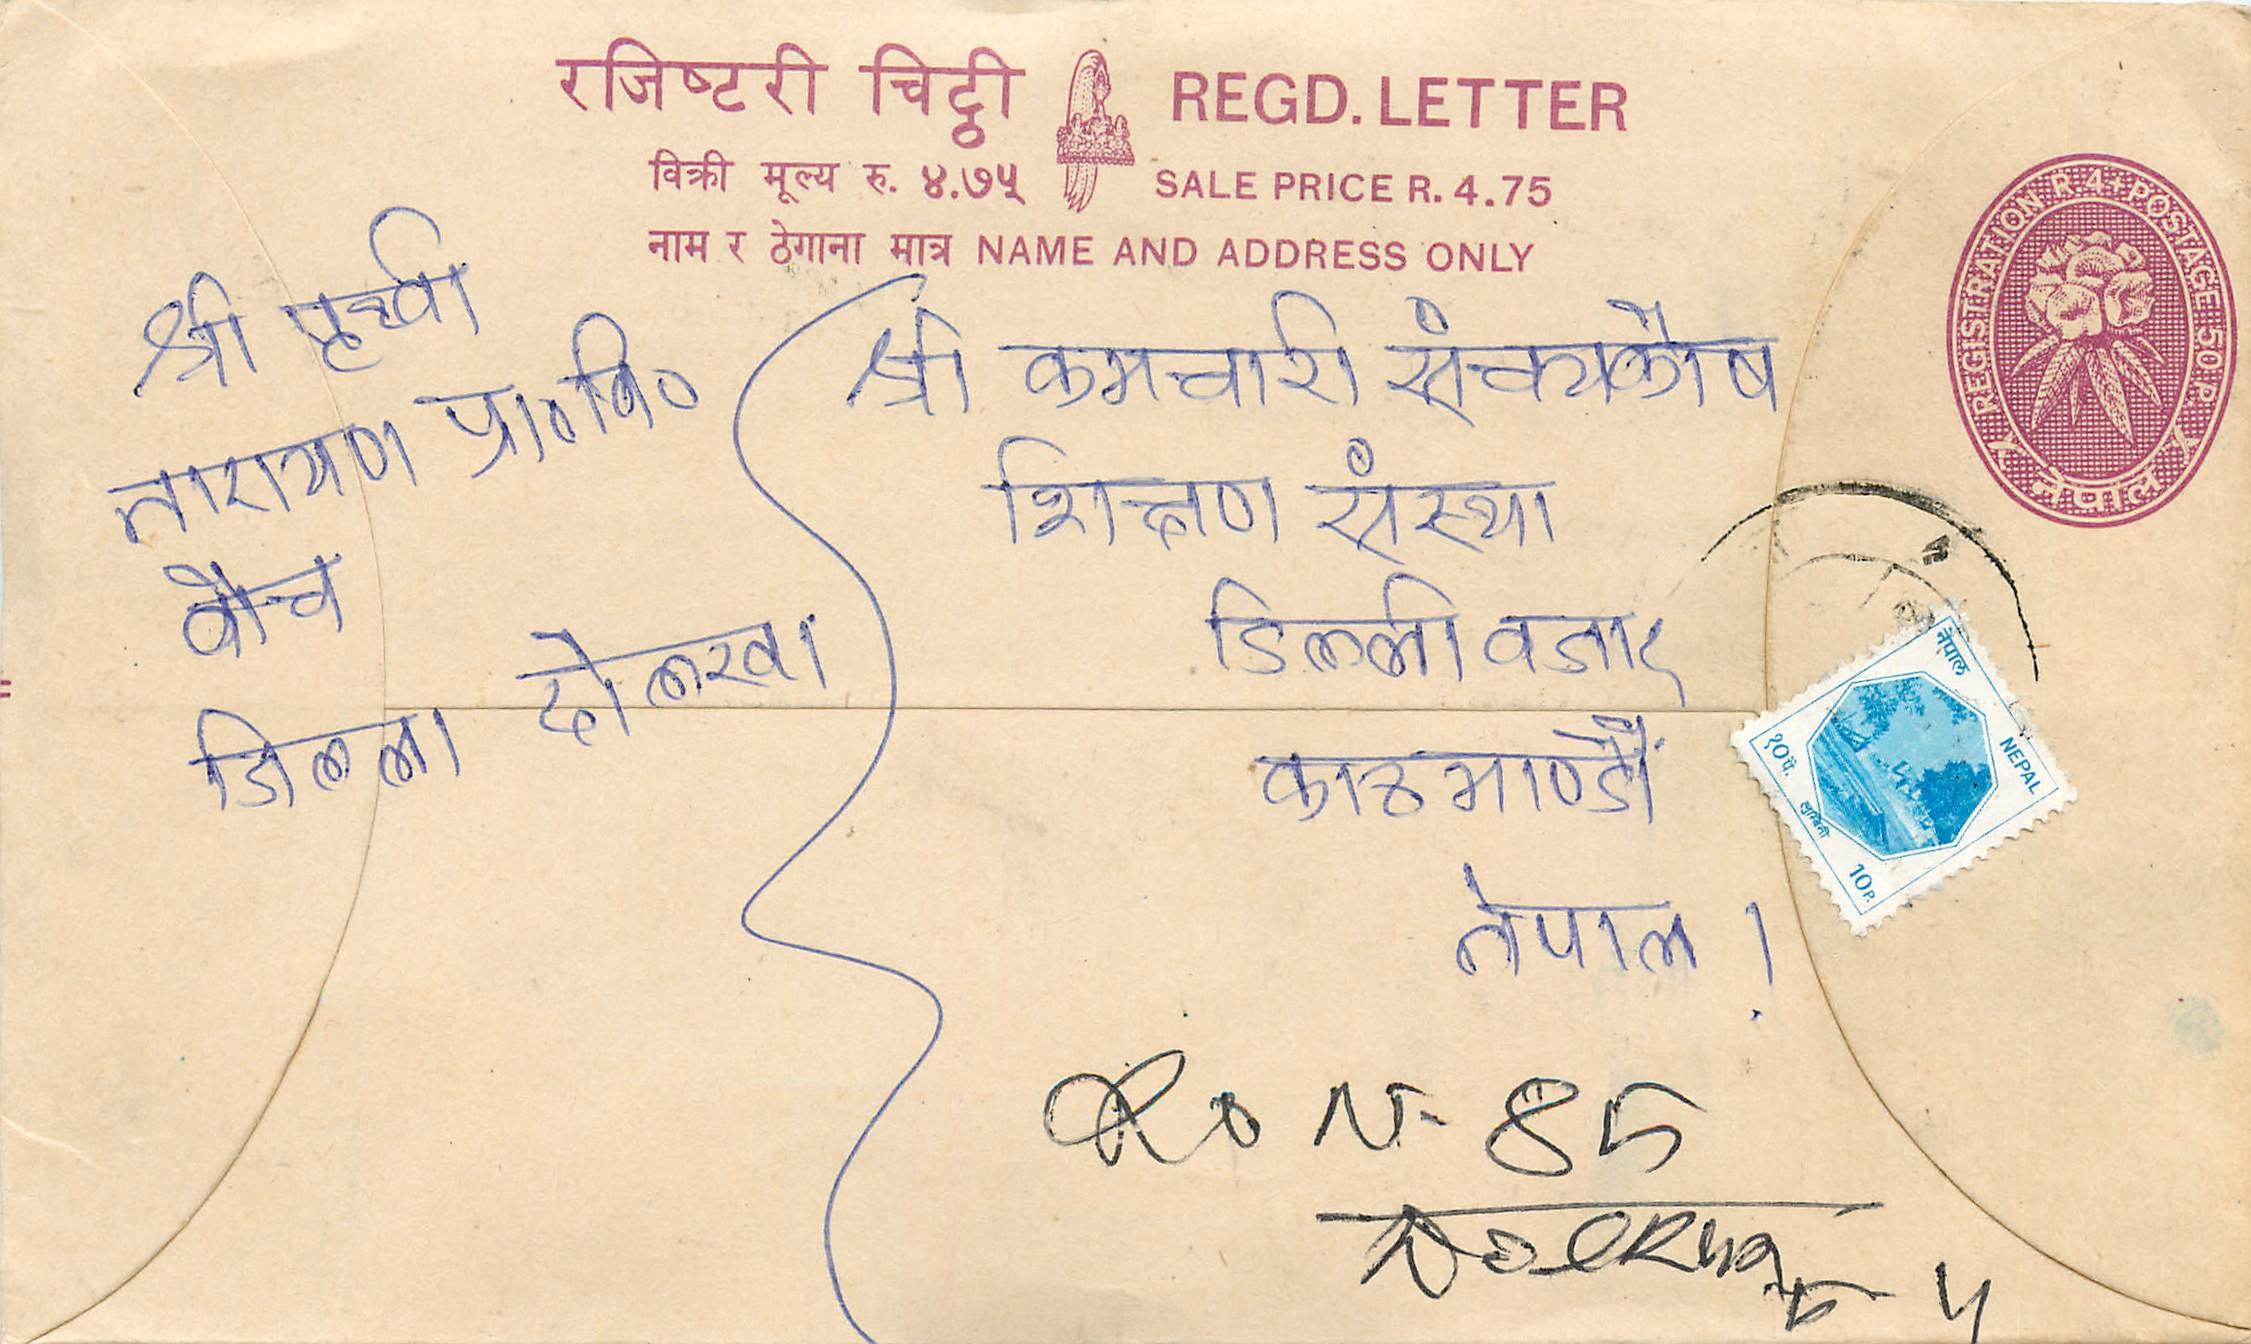 रजिष्टरी चिट्ठी REGD. LETTER
विक्री मूल्य रु. ४.७५ SALE PRICE R. 4.75
नाम र ठेगाना मात्र NAME AND ADDRESS ONLY
REGISTRATION R. 4 + POSTAGE 50 P.
नेपाल
श्री पृथ्वी
नारायण प्रा०वि०
बोच
जिल्ला दोलखा
श्री कमचारी संचयकोष
शिक्षण संस्था
डिल्लीवजार
काठमाण्डौं
नेपाल ।
नेपाल
NEPAL
१०पै.
लुम्बिनी
10P.
Ro N- 85
Dolkha